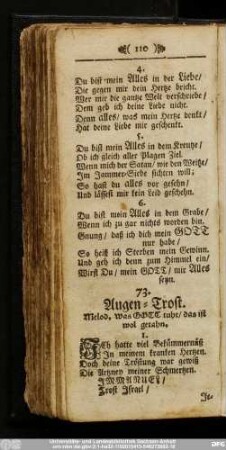 ( 110 )
4.
Du bist mein Alles in der Liebe/
Die gegen mir dein Hertze bricht.
Wer mir die gantze Welt verschriebe/
Dem geb ich deine Liebe nicht.
Denn alles/ was mein Hertz denkt/
Hat deine Liebe mir geschenkt.
5.
Du bist mein Alles in dem Kreutze/
Ob ich gleich aller Plagen Ziel.
Wenn mich der Satan/ wie den Weitze/
Im Jammer-Siebe sichten will;
So hast du alles vor gesehn/
Und lässest mir kein Leid geschehn.
6.
Du bist mein Alles in dem Grabe/
Wenn ich zu gar nichts worden bin.
Gnung/ daß ich dich mein GOTT
nur habe/
So heist ich Sterben mein Gewinn.
Und geh ich denn zum Himmel ein/
Wirst Du/ mein GOTT/ mir Alles
seyn.
73.
Augen-Trost.
Melod. Was GOTT tuht/ das ist
wol getahn.
1.
Ich hatte viel Bekümmernüß
In meinem kranken Hertzen.
Doch deine Tröstung war gewiß
Die Artzney meiner Schmertzen.
IMMANUEL/
Trost Israel/